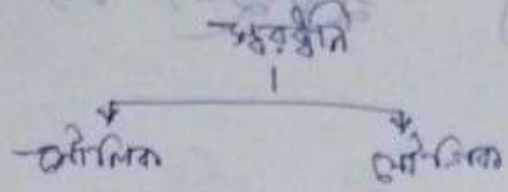 স্বরধ্বনি
মৌলিক যৌগিক